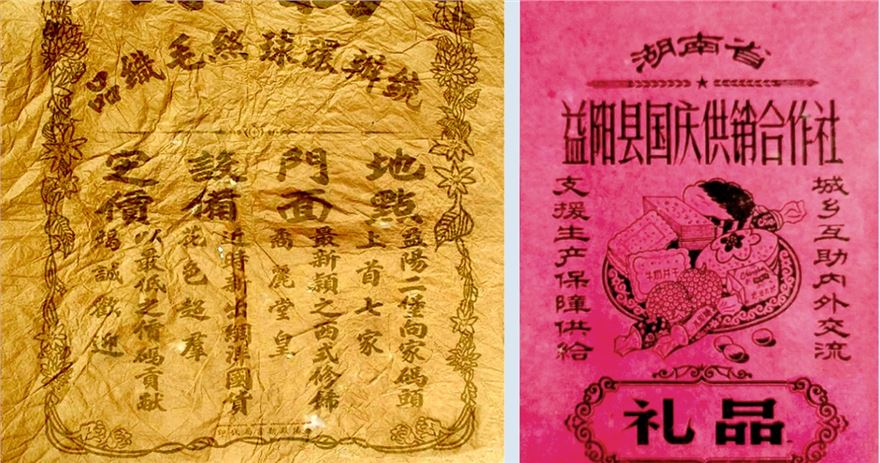 統辦環球絲毛織品
地點
益陽二堡向家碼頭
上首七家
門面
最新穎之西式修飾
麗堂皇
設備
近時新出綢洋國貨
花色超羣
定價
以最低之價碼貢獻
竭誠歡迎
湖南省
益阳县国庆供销合作社
城乡互助内外交流
支援生产保障供给
牛奶并干
礼品